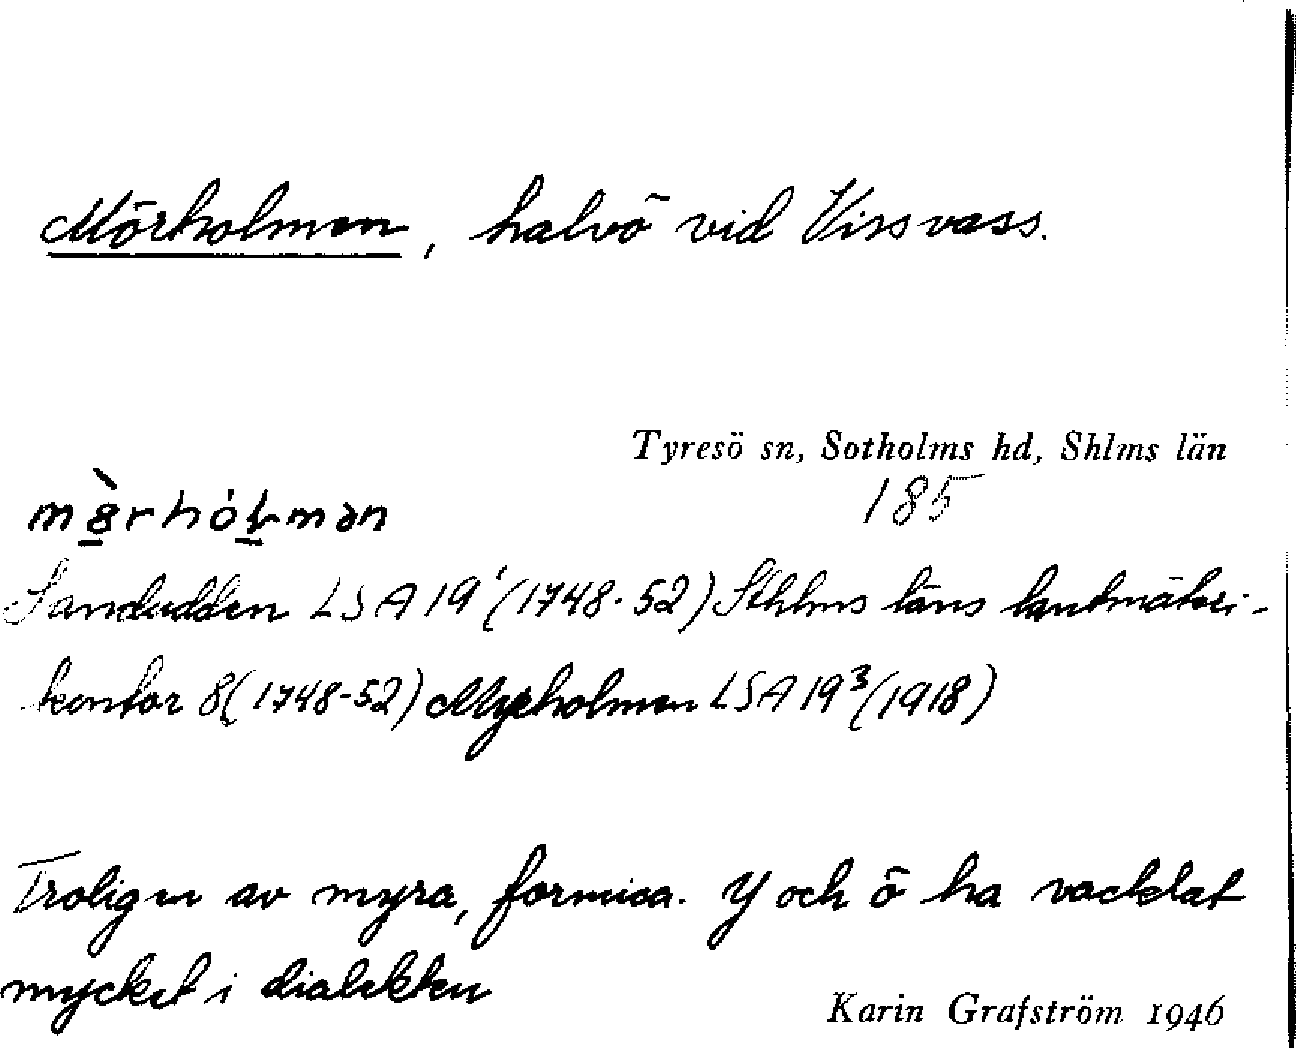 Mörholmen, halvö vid Vissvass.
Tyresö sn, Sotholms hd, Shlms län
185
Sandudden LSA 19¹ (1748-52) Sthlms läns lantmäteri-
kontor 8 (1748-52) Myrholmen LSA 19³ (1918)
Troligen av myra, formica. Y och ö ha vacklat
mycket i dialekten
Karin Grafström 1946